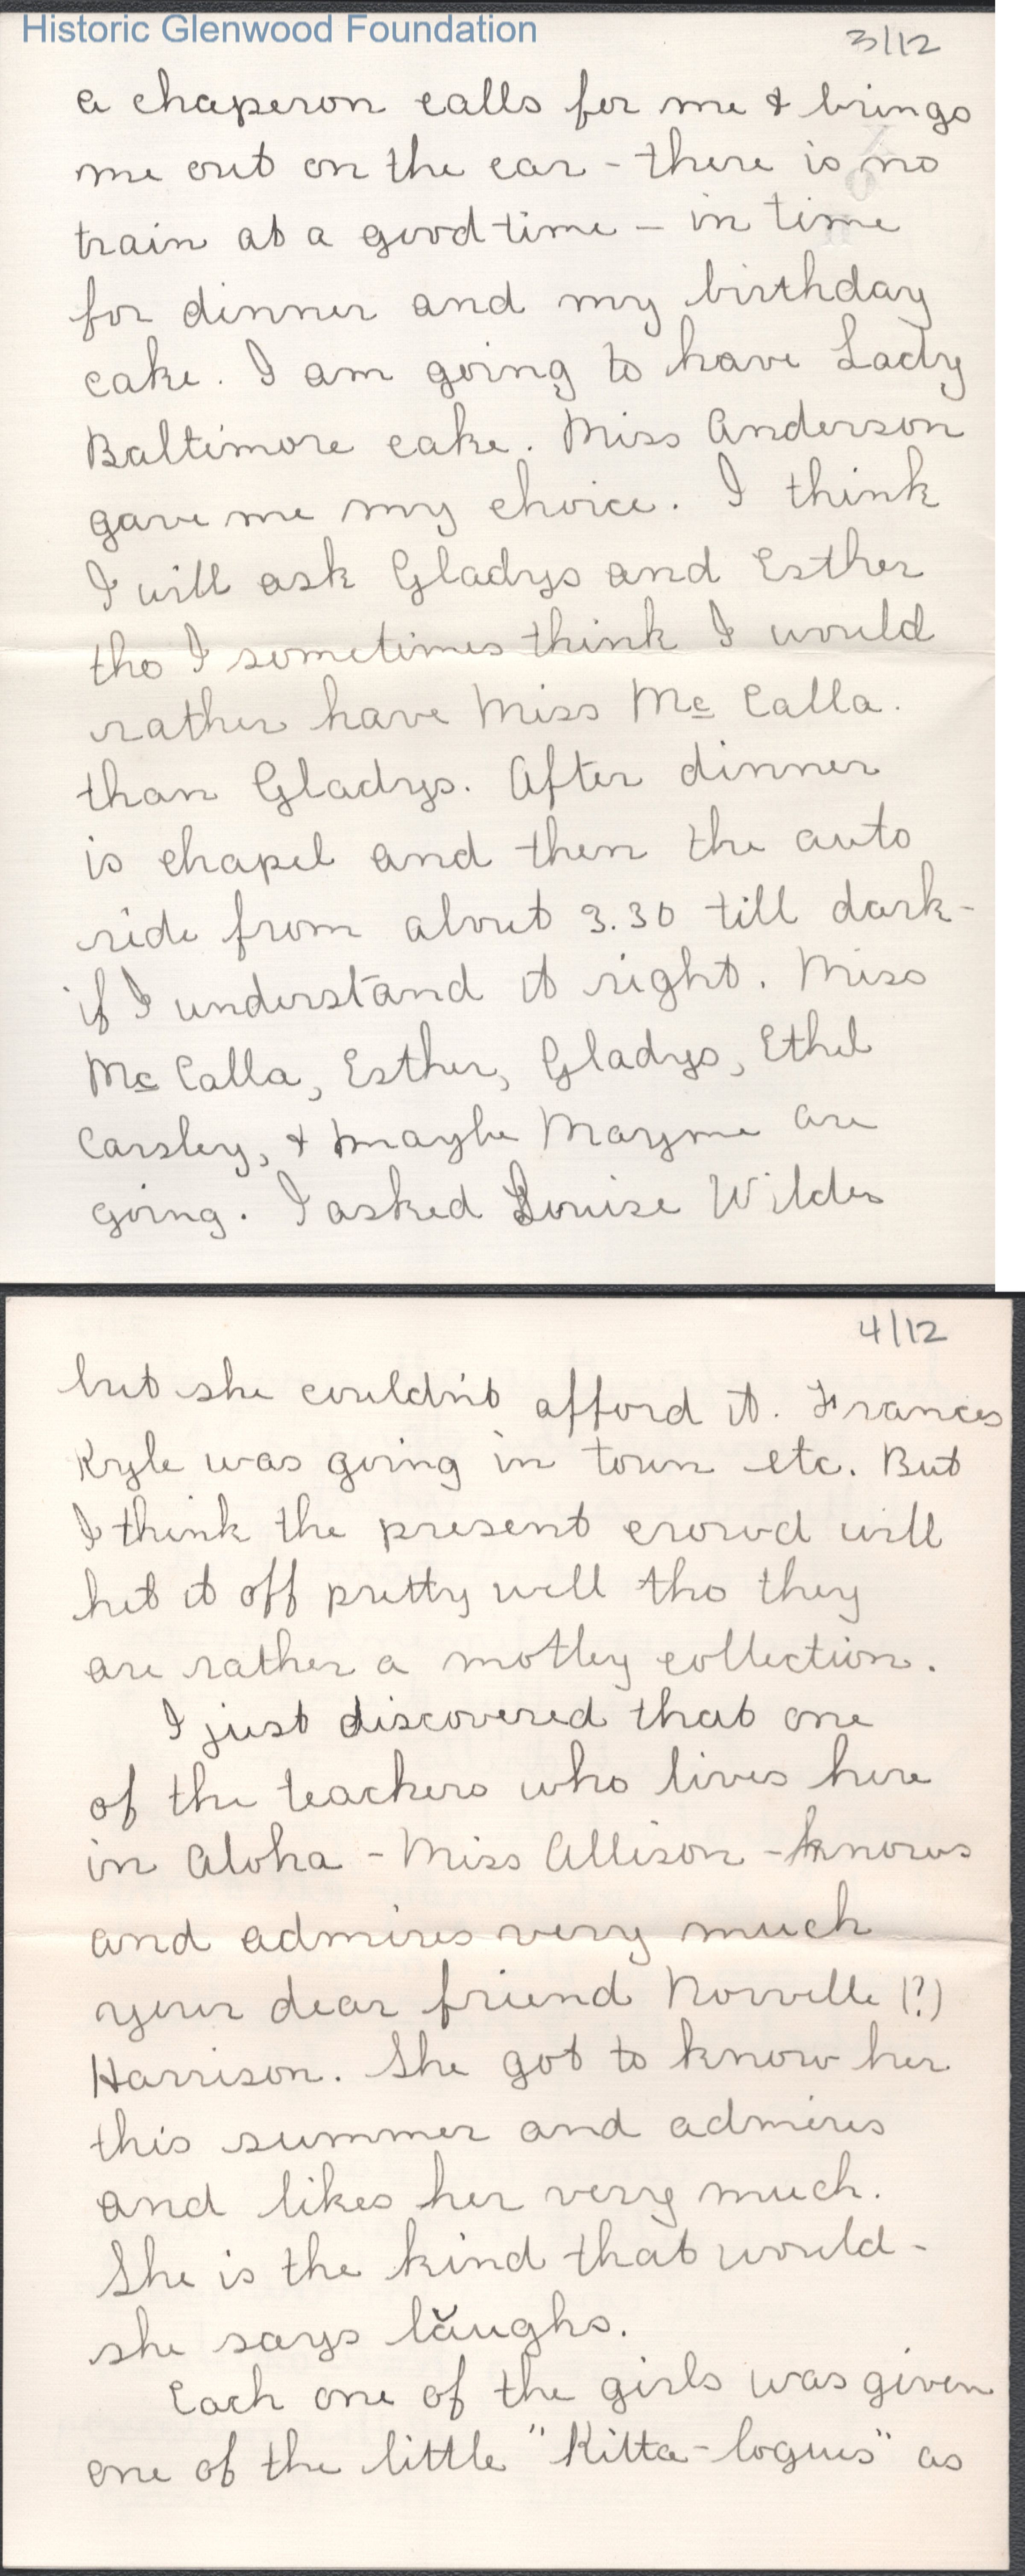 Historic Glenwood Foundation
3/12
a chaperon calls for me & brings
me out on the car - there is no
train at a good time - in time
for dinner and my birthday
cake. I am going to have Lady
Baltimore cake. Miss Anderson
gave me my choice. I think
I will ask Gladys and Esther
tho I sometimes think I would
rather have Miss Mc Calla.
than Gladys. After dinner
is chapel and then the auto
ride from about 3.30 till dark-
if I understand it right. Miss
Mc Calla, Esther, Gladys, Ethel
Carsley, & maybe Mayme are
going. I asked Louise Wildes
4/12
but she couldn't afford it. Frances
Kyle was going in town etc. But
I think the present crowd will
hit it off pretty well tho they
are rather a motley collection.
I just discovered that one
of the teachers who lives here
in Aloha - Miss Allison - knows
and admires very much
your dear friend Norvelle (?)
Harrison. She got to know her
this summer and admires
and likes her very much.
She is the kind that would -
she says lăughs.
Each one of the girls was given
one of the little "Kitta-logues" as